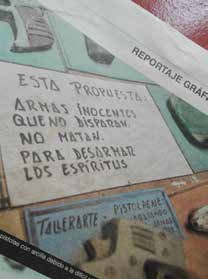 REPORTAJE GRAF
ESTA PROPUESTA:
ARMAS INOCENTES
QUE NO DISPARAN.
NO MATAN.
PARA DESARMAR
LOS ESPÍRITUS
TALLERARTE
pistolas con arcilla debido a la